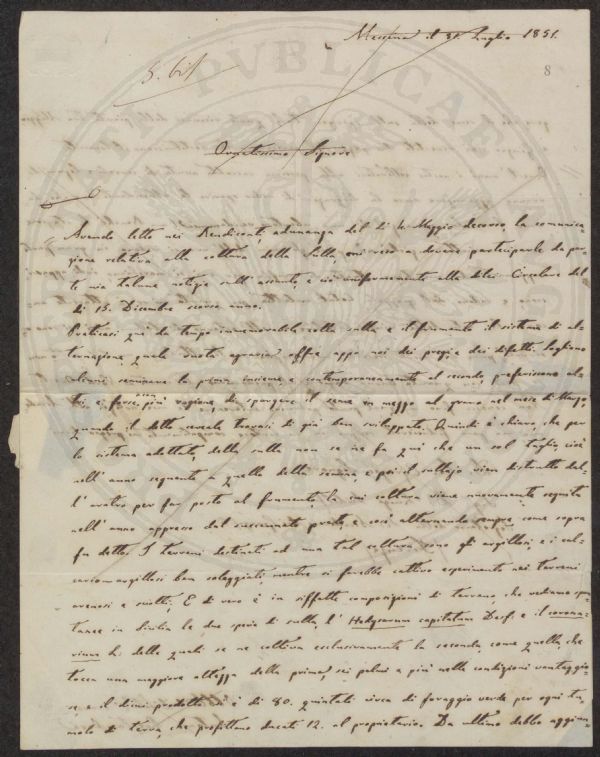 Messina il 31. Luglio 1851.
8
5. bis
Ornatissimo Signore
Avendo letto nei Rendiconti, adunanza del dì 4 Maggio decorso, la comunica
zione relativa alla coltura della Sulla, mi reco a dovere parteciparle da par
te mia talune notizie sull'assunto, e ciò uniformemente alla di lei Circolare del
dì 15. Dicembre scorso anno.
Praticasi quì da tempo immemorabile colla sulla e il frumento il sistema di al
ternazione, quale ruota agraria offre appo noi dei pregi e dei difetti. Sogliono
alcuni seminare la prima insieme e contemporaneamente al secondo, preferiscono al
tri, e forse con più ragione, di spargere il seme in mezzo al grano nel mese di Marzo,
quando il detto cereale trovasi di già ben sviluppato. Quindi è chiaro, che per
lo sistema adottato, della sulla non se ne fa quì che un sol taglio, cioè
nell'anno seguente a quello della semina, e poi il sullajo vien distrutto dal
l'aratro per far posto al frumento, la cui coltura viene nuovamente seguita
nell'anno appresso dal succennato prato, e così alternando sempre come sopra
fu detto. I terreni destinati ad una tal coltura sono gli argillosi, e i cal
careo-argillosi ben soleggiati, mentre si farebbe cattivo esperimento nei terreni
arenosi e sciolti. E di vero è in siffatte composizioni di terreno, che vediamo spon
tanee in Sicilia le due specie di sulla, l'Hedysarum capitatum Desf. e il corona-
rium L. delle quali se ne coltiva esclusivamente la seconda, come quella, che
tocca una maggiore altezza della prima, sei palmi e più nelle condizioni vantaggio-
se, e il dicui prodotto si è di 80. quintali circa di foraggio verde per ogni tu,
molo di terra, che profittano ducati 12. al proprietario. Da ultimo debbo aggiun-